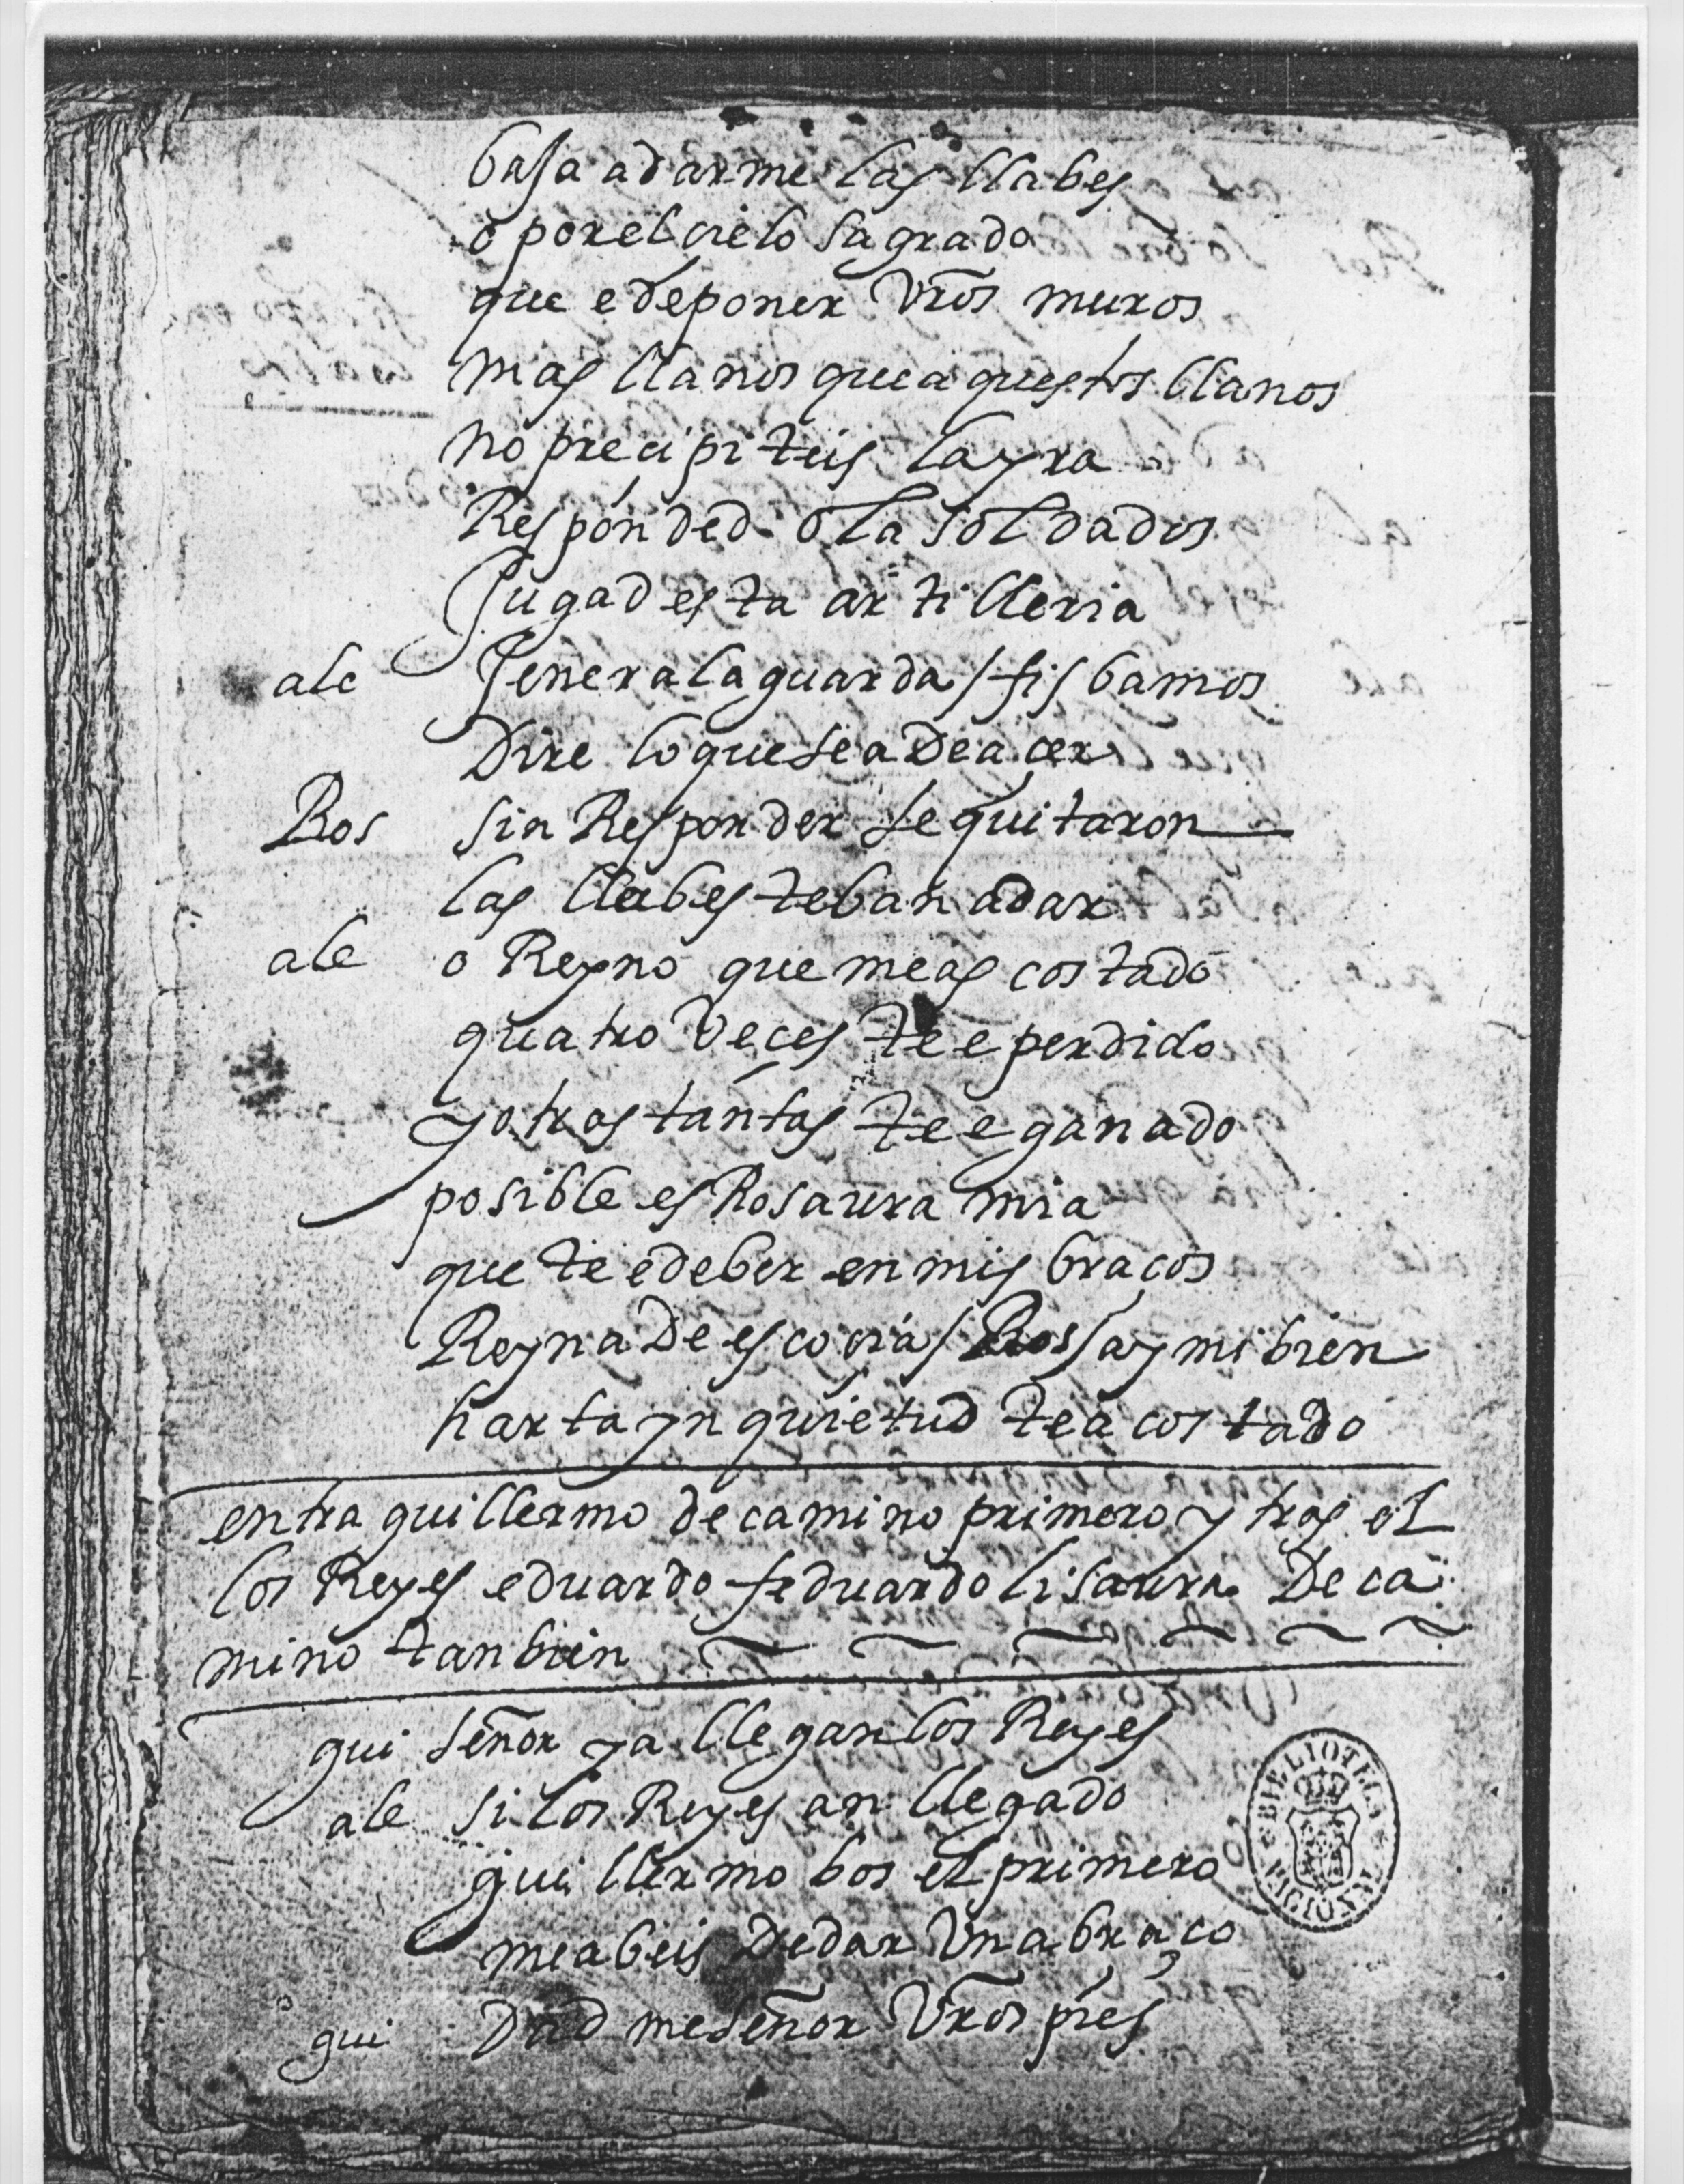 baja a darme las llabes
o por el cielo sagrado
que e de poner vr̃os muros
mas llanos que aquestos llanos
no precipiteis la yra
Responded ola soldados
Jugad esta artilleria
ale Jeneral aguarda / fis / bamos
Dire lo que se a De açer
Ros sin Responder se quitaron
las llabes te ban a dar
ale o Reyno que me as costado
quatro veces te e perdido
y otras tantas te e ganado
posible es Rosaura mia
que te e de ber en mis braços
Reyna De escocia / Ros / ay mi bien
harta ynquietud te a costado
entra guillermo de camino primero y tras el
los Reyes eduardo feduardo lisaura De ca
mino tanbien
gui señor ya llegan los Reyes
ale si los Reyes an llegado
guillermo bos el primero
me abeis De dar Vn abraço
gui Dadme señor Vr̃os pies
BIBLIOTECA NACIONAL